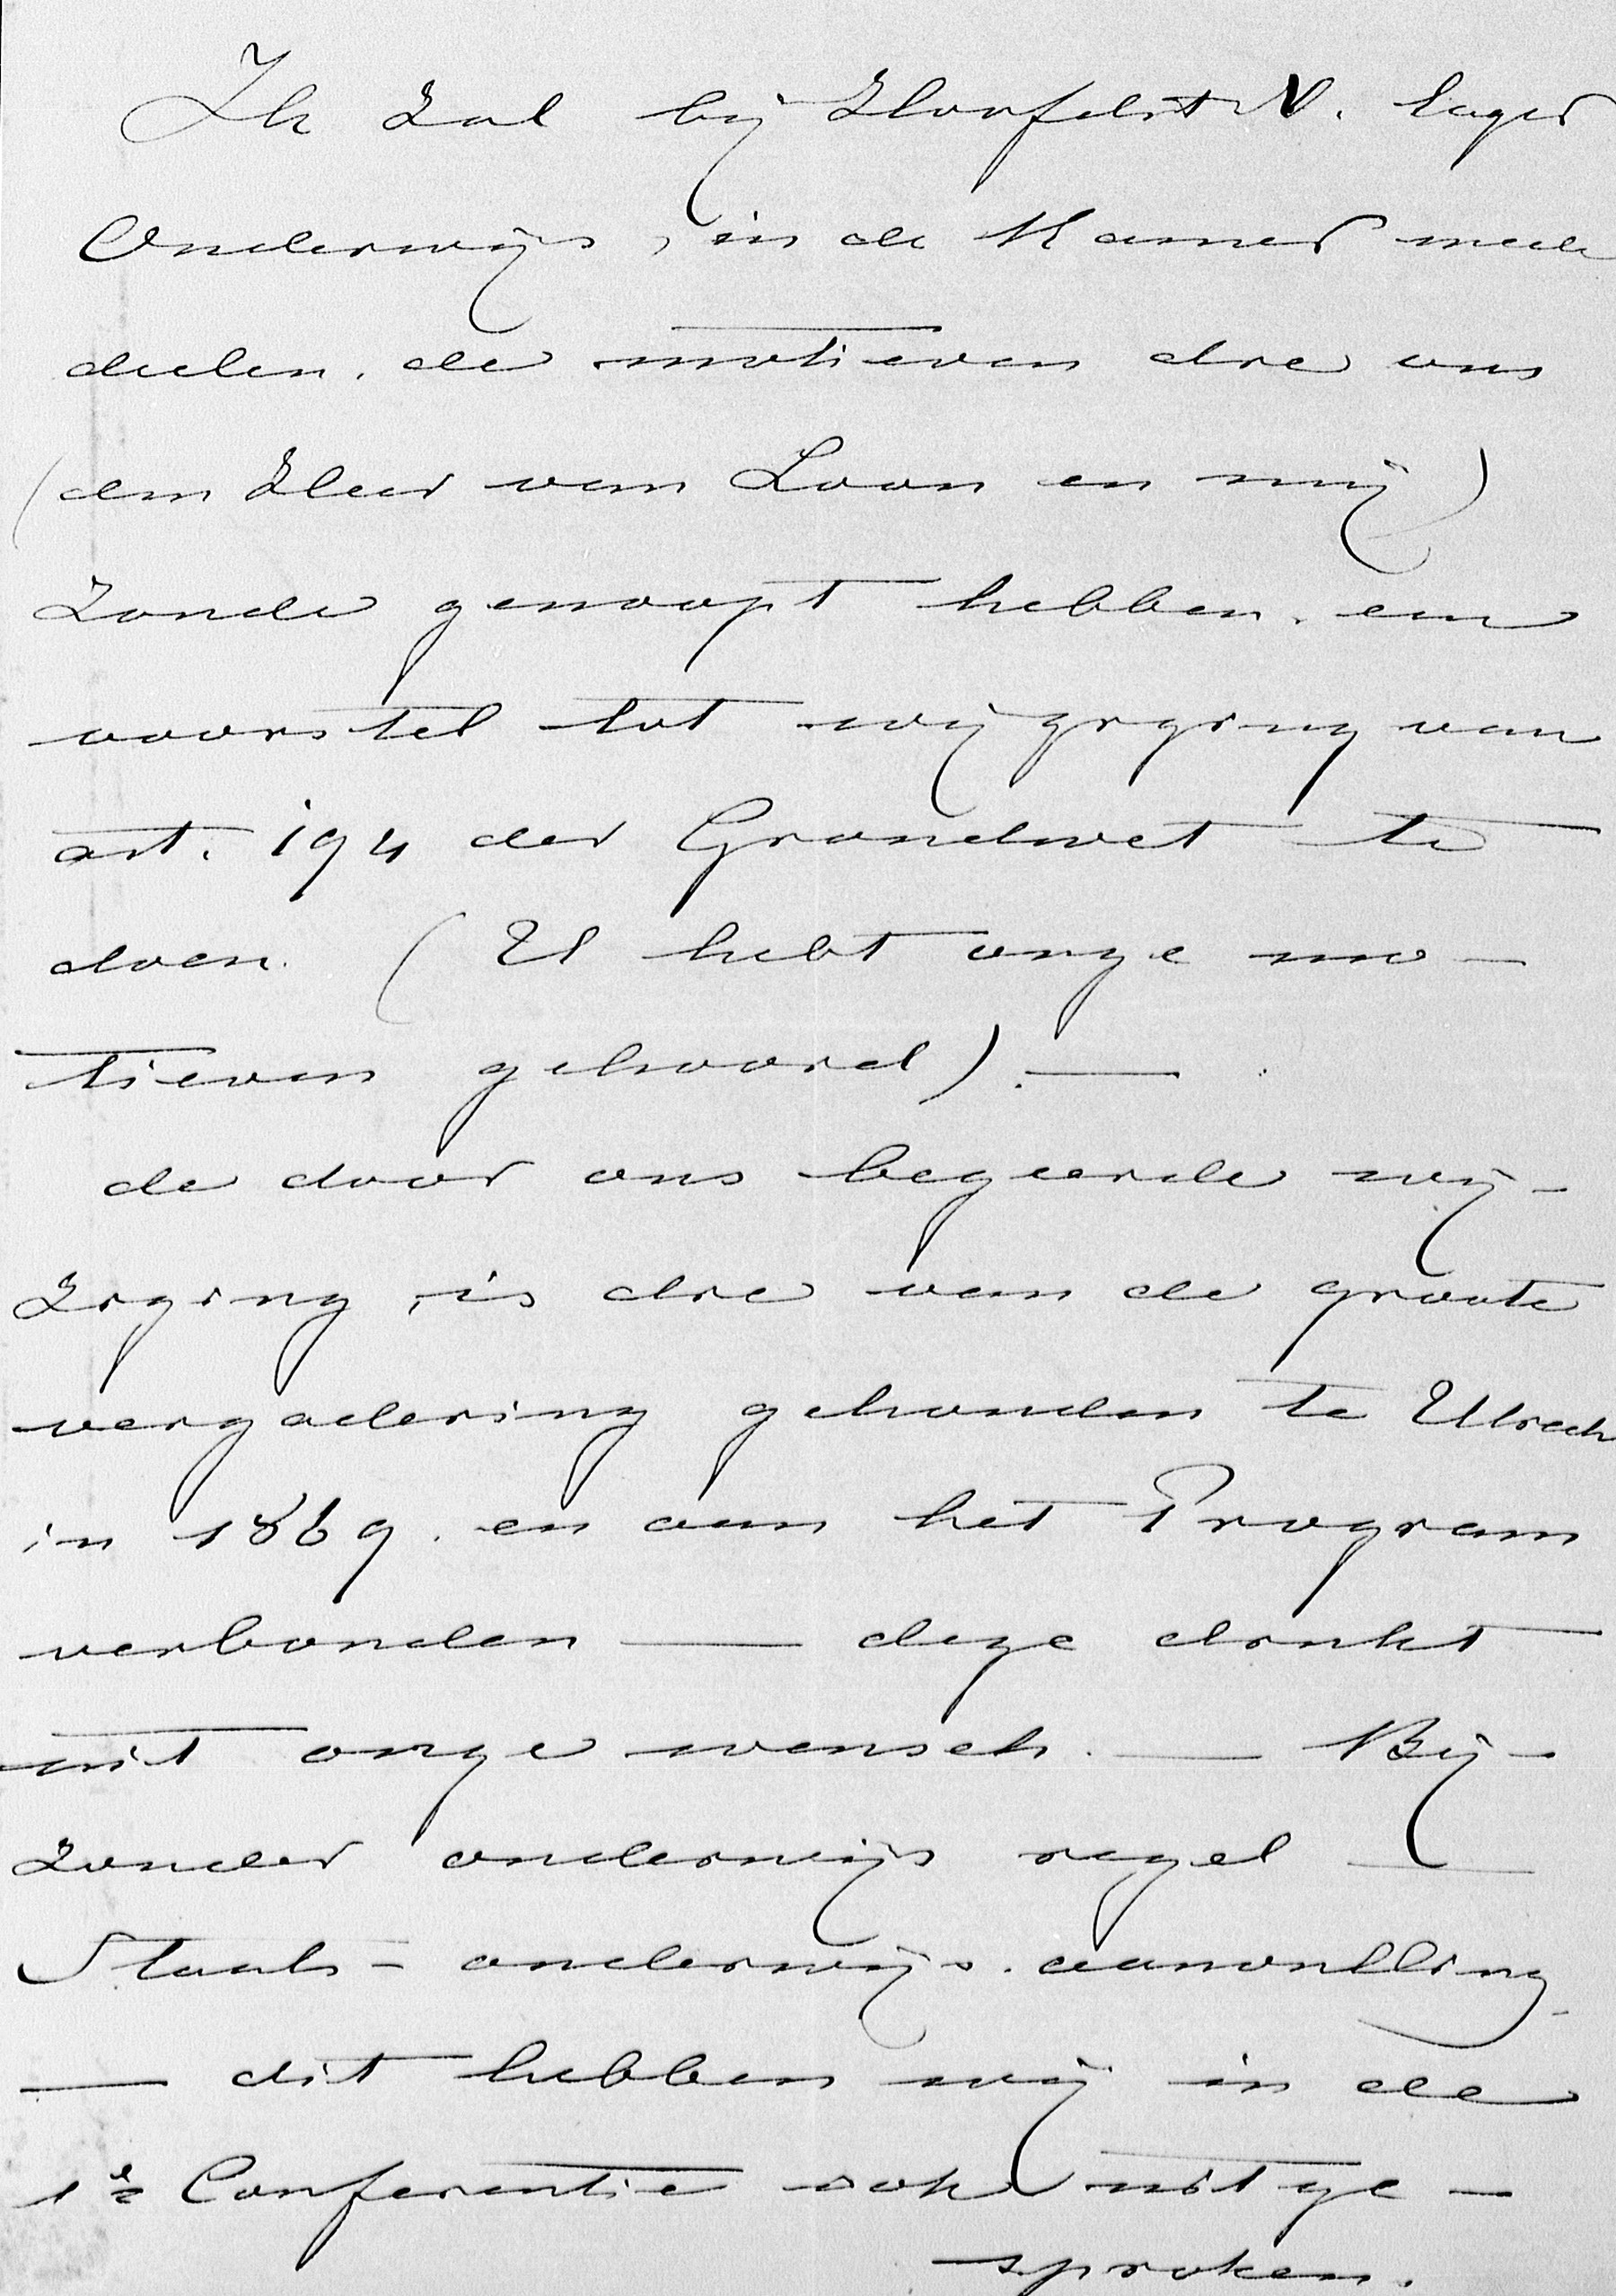 Ik zal bij Hoofdst V. Lager
Onderwijs, in de Kamer mede
deelen, de motieven die ons
(den Heer van Loon en mij)
zonde genoopt hebben, een
voorstel tot wijziging van
art. 194 der Grondwet te
doen. (U hebt onze mo-
tieven gehoord). —
de door ons begeerde wij-
ziging, is die van de groote
vergadering gehouden te Utrech
in 1869. en aan het Program
verbonden — deze drukt
uit onze wensch. — Bij-
zonder onderwijs regel —
Staats-onderwijs aanvulling
— dit hebben wij in de
1e Conferentie ook uitge-
sproken.